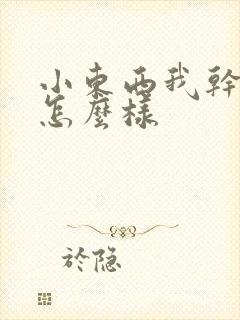 小東西我幹
怎麼樣
於隐